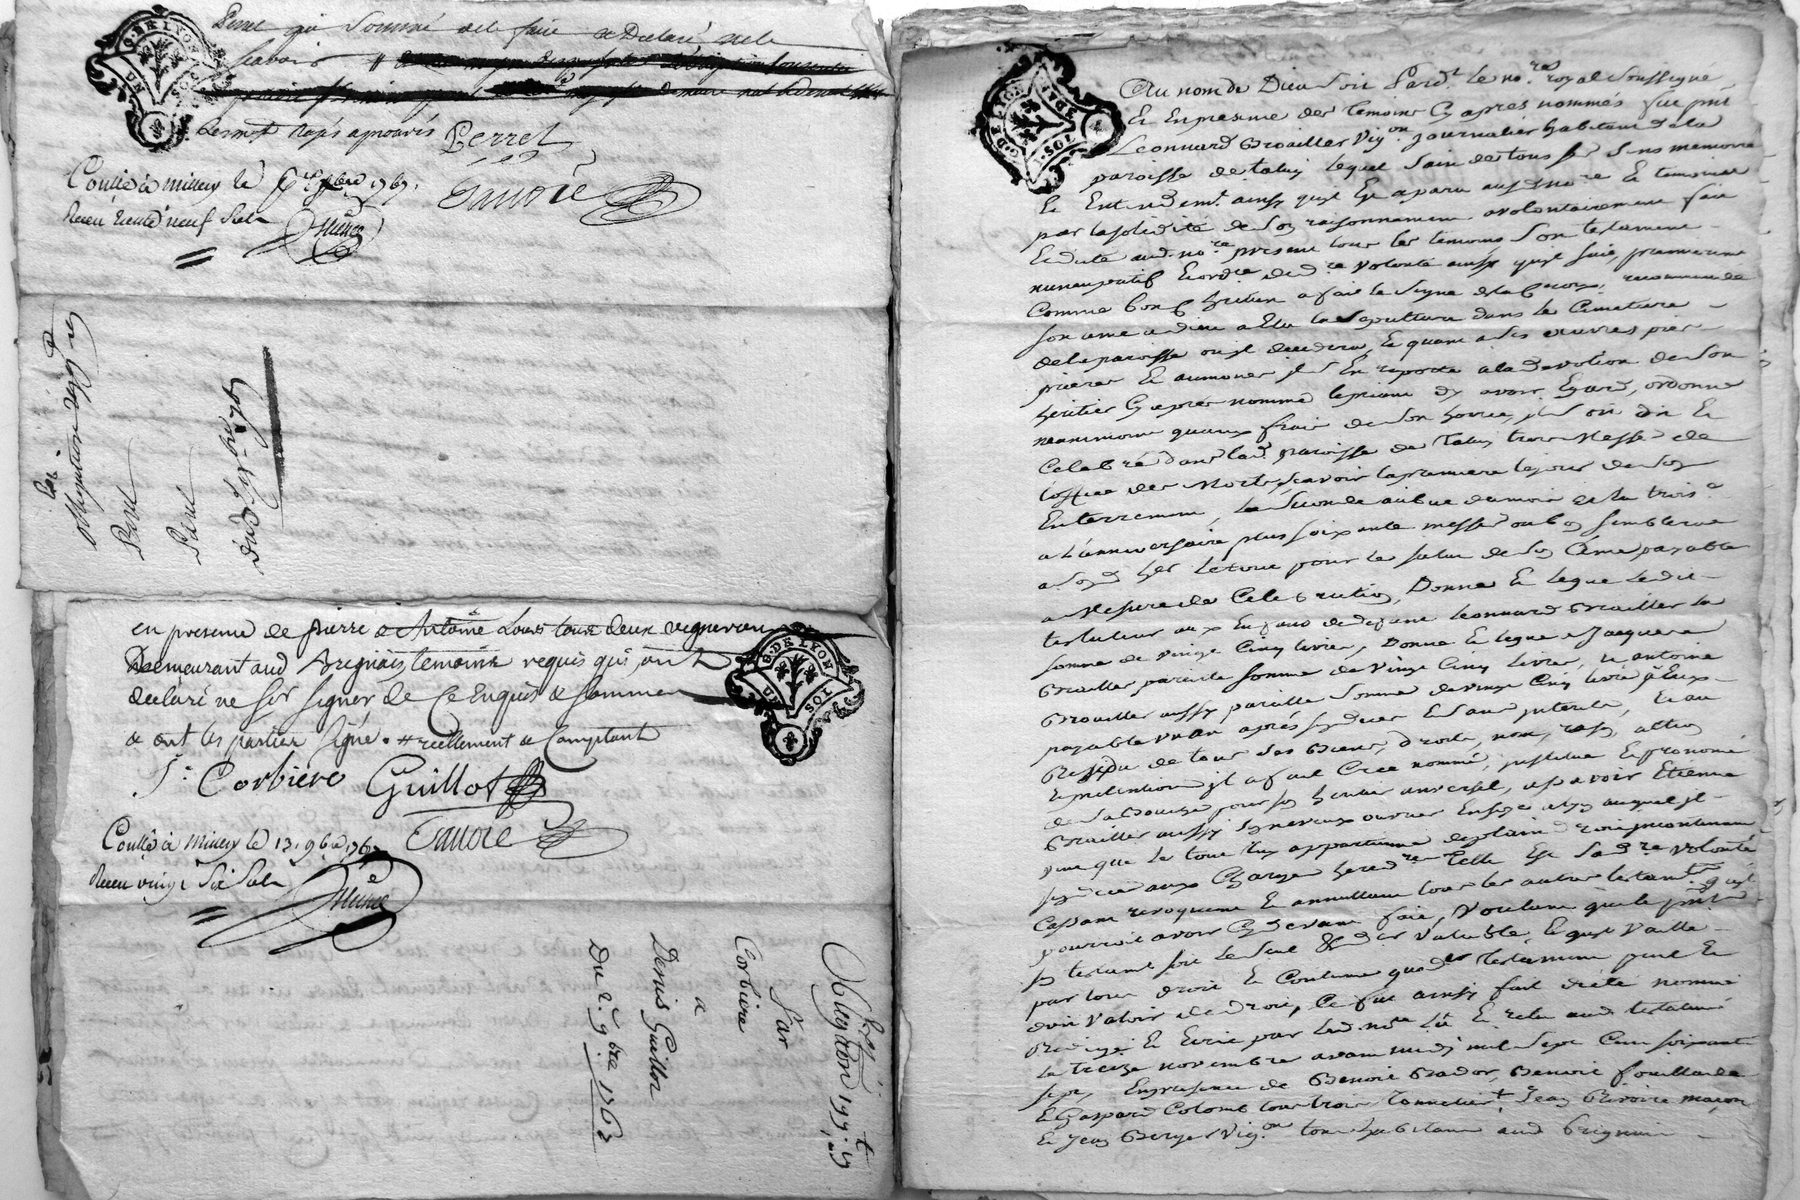 G. DE LYON
UN SOL
Perret qui sommé de le faire a Declaré ne le
scavoir
Les mots rayés aprouvés
Perret
Controlé à Millery le 9bre 1767.
Reçeu trente neuf sols
obligation
Perret
Du 9bre 1767
en presence de pierre & Antoine Louis tous deux vignerons
Demeurant aud Brignais temoins requis qui ont
declaré ne scavoir signer de Ce Enquis & sommés
& ont les parties signé. # reellement & Comptant
Corbiere Guillot
G. DE LYON
UN SOL
Controlé à Millery le 13. 9bre 1767
Reçeu vingt Six Sols
Obligation
Par
Corbiere
a
Denis Guillot
Du 2e 9bre 1767
G. DE LYON
DEUX SOLS
Au nom de Dieu soit Pardt. le nore. royal Soussigné
Et En presence des temoins Cy apres nommés fut pnt
Leonnard Brailler Vigon. journalier habitant de la
paroisse de taluy lequel Sain de tous ses Sens memoire
Et Entendemt. ainsy quil Est aparu aud nore Et temoins
par la solidité de son raisonnement a volontairement fait
Et dicté aud. nore present tous les temoins Son testament
nuncupatif Et ordre de dre volonté ainsy quil suit, premierement
Comme bon Chretien a fait le Signe de la Croix, recommandé
son ame a dieu a Elu la Sepulture dans le Cimetiere
de la paroisse ou il decedera, Et quant a ses œuvres pies
prieres Et aumones il s'En raporte a la devotion de Son
heritier Cy apres nommé le priant dy avoir Egard, ordonne
neanmoins quaux frais de son hoirie, il soit dit Et
Celebré dans lad. paroisse de Taluy trois Messes de
loffice des Morts, scavoir la premiere le jour de Son
Enterrement, la Seconde au bout du mois Et la troise
a l'anniversaire plus soixante messes ou bon semblera
a sond her Le tout pour le salut de Son ame payable
a Mesure de Celebration, Donne Et legue Ledit
testateur aux Enfans de defunt Leonnard Brailler la
somme de vingt Cinq livres, Donne Et legue a Jacques
Brailler pareille somme de vingt Cinq livres, Et antoine
Brailler aussy pareille somme de vingt Cinq livres
payable un an aprés son deces Et sans interets, Et au
Residu de tous ses Biens, droits, noms, raisons, actions
Et pretentions il a fait Créé nommé, institué Et prononcé
de Sa Bouche pour son heritier universel, a Scavoir Etienne
Brailler aussy Son neveux
veut que le tout luy appartienne de plein droit incontinent
Son deces aux Charges hereditre Telle Est Sa dre volonté
Cassant revoquant Et annullant tous les autres testamts quil
pourroit avoir Cy devant fait, Voulant que le pnt
testament soit le Seul & dernier Valable, Et quil Vaille
par tout droit Et Coutume que testament peut Et
doit Valoir de droit, Ce fut ainsy fait dicté nommé
Redigé Et Ecrit par led. nore lû Et relu aud testateur
le treize novembre avant midy mil Sept Cent soixante
sept, En presence de Benoit Bador, Benoit fouillade
Et Gaspard Colomb tous trois tonneliers Jean Rivoire maçon
Et Jean Berger Vigon tous habitans aud Brignais